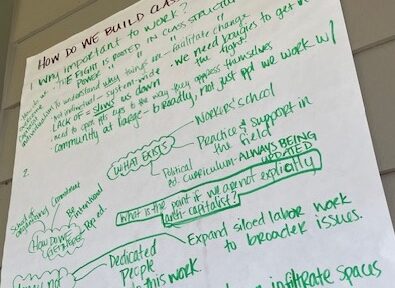 HOW DO WE BUILD CLASS
1. Why important to work?
THE FIGHT IS ROOTED IN CLASS STRUCTURE
POWER " " "
to understand why things are - facilitate change
not individual - system-wide. We need bougies to get in
LACK OF - SLOWS us down. the fight
need to open ppl's eyes to the way they oppress themselves
Community at large - broadly, not just ppl we work w/
2.
WORKERS' school
WHAT EXISTS
Practice & support in
the field
Political
ed. Curriculum - ALWAYS BEING
UPDATED
What is the point if we are not explicitly
anti-capitalist?
Commitment
Be
intentional
Pop ed.
HOW DO WE
Dedicated
People
this work.
Expand siloed labor work
to broader issues.
infiltrate spaces